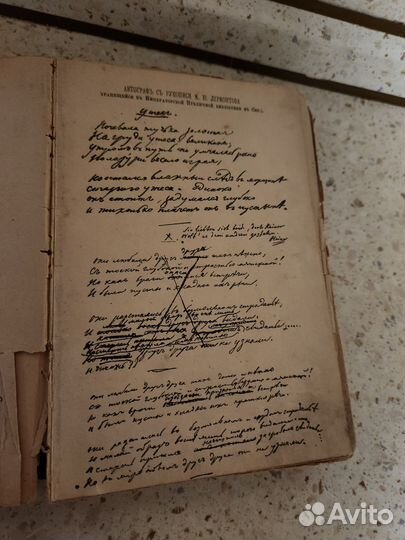 АВТОГРАФЪ СЪ РУКОПИСИ М. Ю. ЛЕРМОНТОВА
хранящейся въ Императорской Публичной библіотекѣ въ Спб.)
Утесъ.
Ночевала тучка золотая
На груди утеса великана,
утромъ въ путь она умчалась рано
По лазури весело играя;
Но остался влажный слѣдъ въ морщинѣ
Стараго утеса. Одиноко
Онъ стоитъ задумался глубоко
И тихонько плачетъ онъ въ пустынѣ.
Sie liebten sich beide, doch keiner
Wollt' es dem andern gestehn
Heine
X.
они любили другъ друга такъ нѣжно,
Съ тоской глубокой и страстью мятежной!
Но какъ враги опасалися встрѣчи,
И были пусты и хладны ихъ рѣчи.
они разстались въ безмолвномъ страданьи,
И милый образъ во снѣ
свиданье.....
другъ друга они не узнали.
они любили другъ друга такъ долго и нѣжно
съ тоской глубокой и страстью безумно-мятежной!
Но какъ враги избѣгали признанья и встрѣчи
и были пусты и хладны ихъ краткія рѣчи.
они разстались въ безмолвномъ и гордомъ страданьи
и милый образъ во снѣ лишь порою видали.
И смерть пришла наступило за гробомъ свиданье..
Но въ мірѣ новомъ другъ друга они не узнали.
Avito